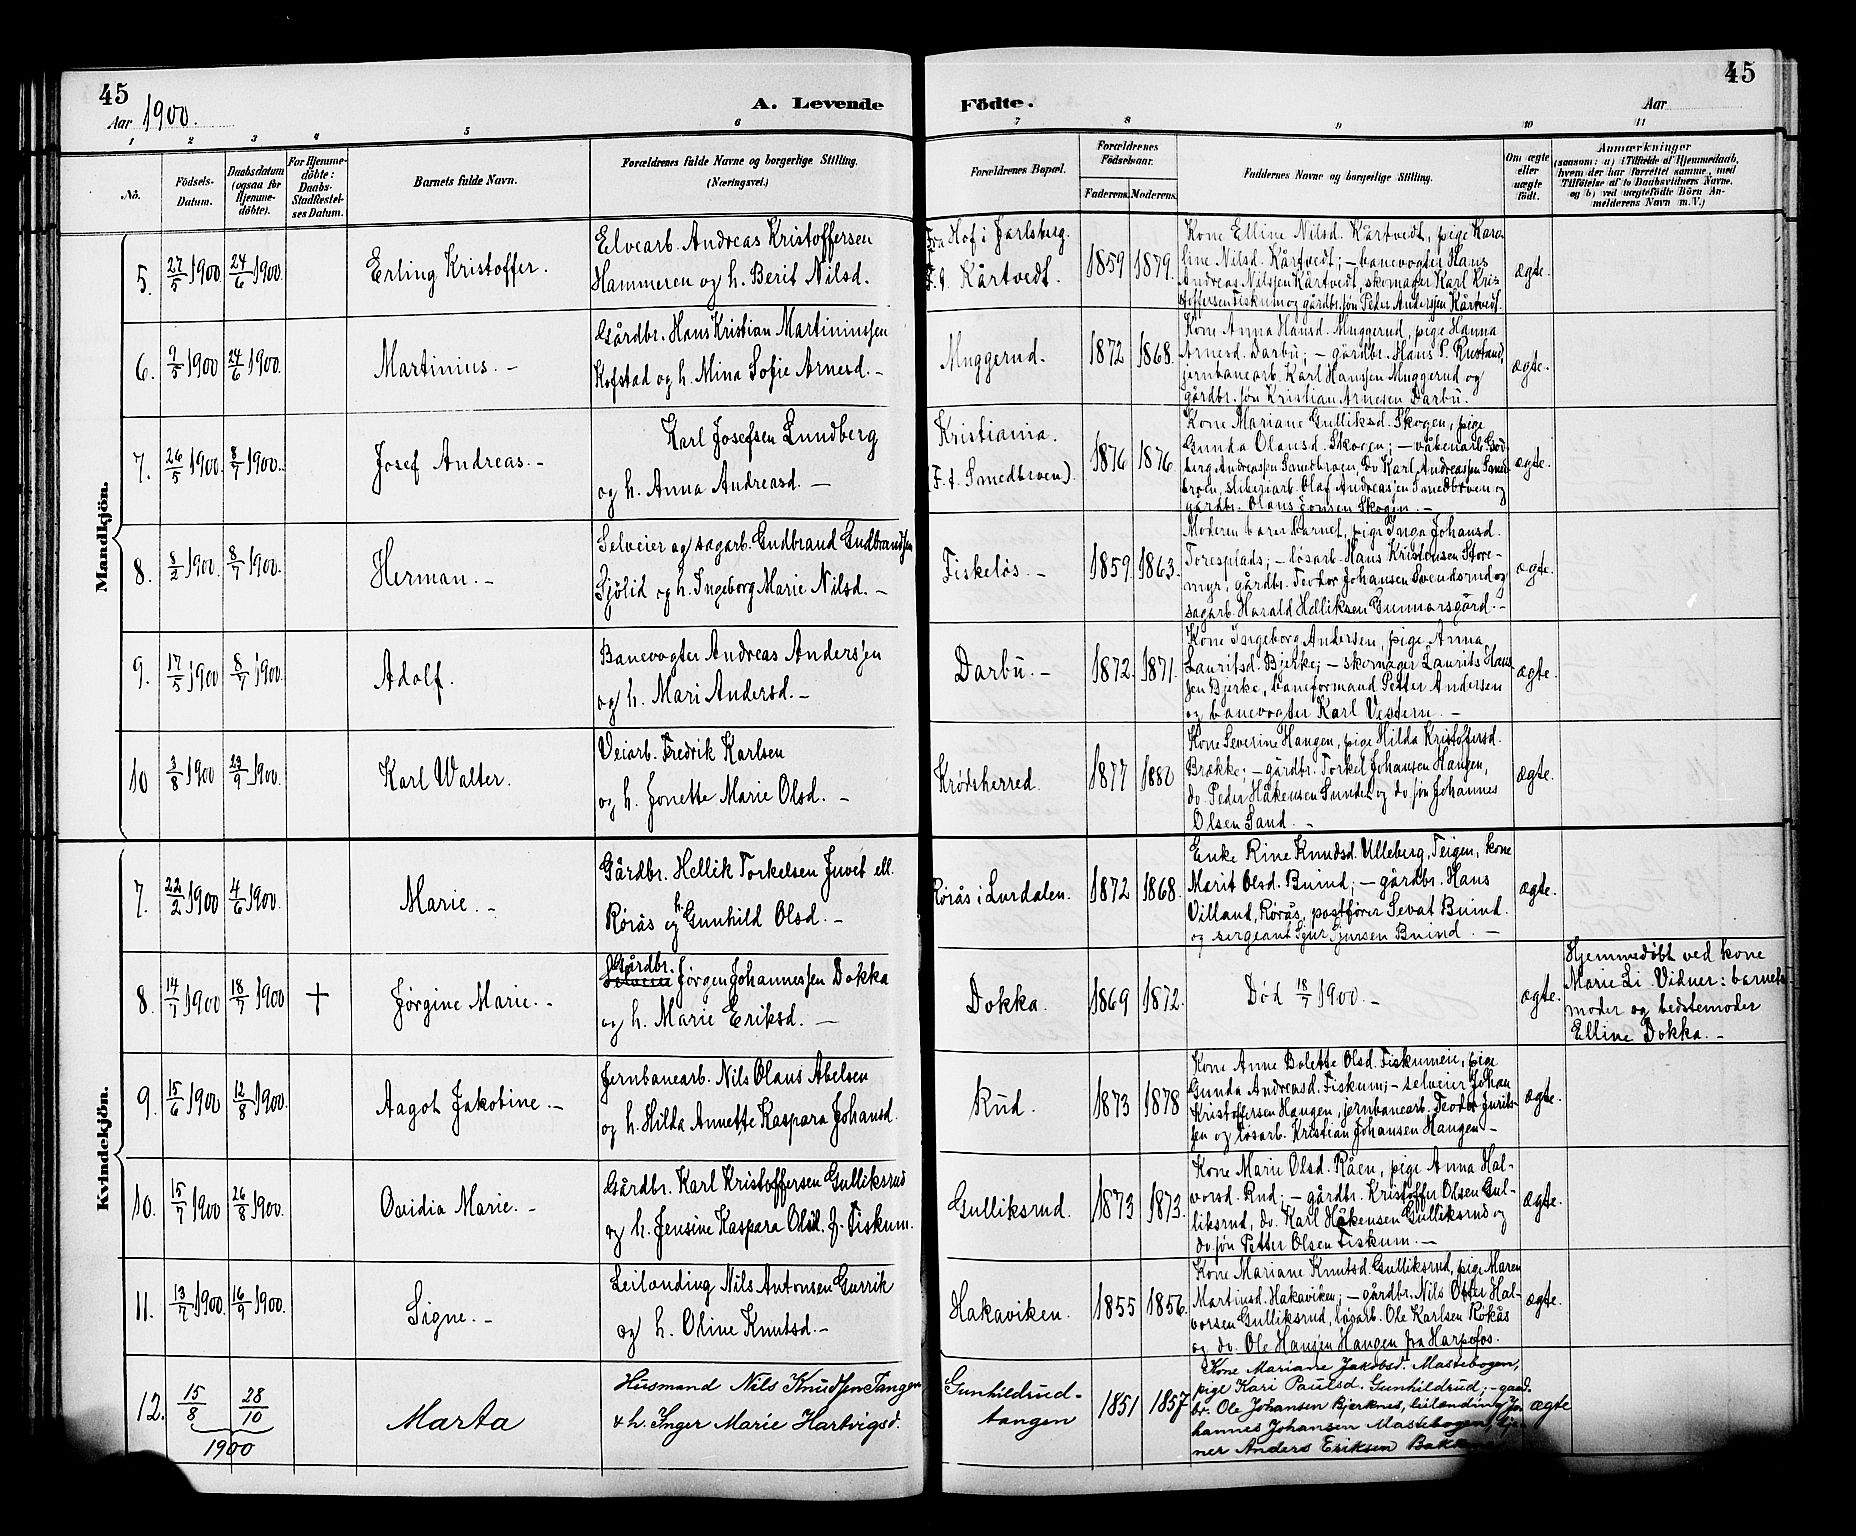 45
Aar 1900.
A. Levende Födte.
Aar
45
1 2 3 4 5 6 7 8 9 10 11
No.
Födsels-Datum.
Daabsdatum (ogsaa for Hjemme-döbte).
For Hjemme-döbte: Daabs-Stadfæstelses Datum.
Barnets fulde Navn.
Forældrenes fulde Navne og borgerlige Stilling.
(Næringsvei.)
Forældrenes Bopæl.
Forældrenes Födselsaar.
Faderens. Moderens.
Faddernes Navne og borgerlige Stilling.
Om ægte eller uægte födt.
Anmærkninger
(saasom: a) i Tilfælde af Hjemmedaab, hvem der har forrettet samme, med Tilföielse af to Daabsvidners Navne, og b) ved uægtefödte Börn Anmelderens Navn (m. V.)
Mandkjön.
5. 27/5 1900 24/6 1900.
Erling Kristoffer.
Elvearb. Andreas Kristoffersen
Hammeren og h. Berit Nilsd.
Fra Hof i Jarlsberg.
F. t. Kårtvedt.
1859 1879.
Kone Elline Nilsd. Kårtvedt, pige Karo-
line Nilsd. Kårtvedt; – banevogter Hans
Andreas Nilssen Kårtvedt, skomager Karl Kris-
toffersen Fiskum og gårdbr. søn Peder Anderssen Kårtvedt.
ægte.
6. 9/5 1900 24/6 1900.
Martinius. –
Gårdbr. Hans Kristian Martininssen
Kofstad og h. Mina Sofie Arnesd. –
Muggerud.
1872 1868.
Kone Anna Hansd. Muggerud, pige Hanna
Arnesd. Darbu; – gårdbr. Hans P. Rustand,
jernbanearb. Karl Hanssen Muggerud og
gårdbr. søn Kristian Arnesen Darbu.
ægte.
7. 26/5 1900. 8/7 1900.
Josef Andreas. –
Karl Josefsen Lundberg
og h. Anna Andreasd. –
Kristiania.
(F. t. Smedbroen).
1876 1876.
Kone Mariane Gulliksd. Skogen, pige
Gunda Olausd. Skogen; – våbenarb. Gud-
berg Andreassen Smedbroen, do Karl Andreassen Smed-
broen, sliberiarb. Olaf Andreassen Smedbroen og
gårdbr. Olaus Jonsen Skogen. –
ægte.
8. 8/2 1900. 8/7 1900.
Herman. –
Selveier og sagarb. Gudbrand Gudbrandsen
Sjölid og h. Ingeborg Marie Nilsd. –
Fiskeløs. –
1859 1863.
Moderen barer barnet, pige Inga Johansd.
Toresplads; – løsarb. Hans Kristensen Store-
myr, gårdbr. Teodor Johansen Svendsrud og
sagarb. Harald Helliksen Gunnarsgård. –
ægte.
9. 17/5 1900 8/7 1900.
Adolf.
Banevogter Andreas Anderssen
og h. Mari Andersd. –
Darbu. –
1872. 1871.
Kone Ingeborg Andersen, pige Anna
Lauritsd. Bjerke; – skomager Laurits Hans-
sen Bjerke, baneformand Petter Andersen
og banevogter Karl Vestern. –
ægte.
10 3/8 1900 23/9 1900.
Karl Walter.
Veiarb. Fredrik Karlsen
og h. Jonette Marie Olsd. –
Krødsherred.
1877 1880
Kone Severine Haugen, pige Hilda Kristoffersd.
Brække; – gårdbr. Torkel Johansen Haugen,
do. Peder Håkensen Sundet og do. søn Johannes
Olsen Sand. –
ægte.
Kvindekjön.
7. 22/2 1900 4/6 1900.
Marie. –
Gårdbr. Hellik Torkelsen Juvet ell.
Rørås og h. Gunhild Olsd. –
Rørås i Lurdalen.
1872 1868.
Enke Rine Knudsd. Ulleberg, Teigen, kone
Marit Olsd. Buind; – gårdbr. Hans
Villand, Rørås, postfører Sevat Buind
og sergeant Sjur Sjursen Buind. –
ægte.
8. 14/7 1900 18/7 1900 †
Jørgine Marie. –
Gårdbr.
Selveier Jørgen Johannessen Dokka
og h. Marie Eriksd. –
Dokka.
1869 1872.
Død 18/7 1900. –
ægte.
Hjemmedøbt ved kone
Marie Li. Vidner: barnets
moder og bedstemoder
Elline Dokka. –
9. 15/6 1900 12/8 1900.
Aagot Jakobine. –
Jernbanearb. Nils Olaus Abelsen
og h. Hilda Annette Kaspara Johansd.
Rud.
1873 1878
Kone Anne Bolette Olsd. Fiskumeii, pige
Gunda Andreasd. Fiskum; – selveier Johan
Kristoffersen Haugen, jernbanearb. Teodor Jurits-
sen og løsarb. Kristian Johansen Haugen –
ægte.
10. 15/7 1900 26/8 1900.
Ovidia Marie. –
Gårdbr. Karl Kristoffersen Gulliksrud
og h. Jensine Kaspara Olsd. f. Fiskum.
Gulliksrud.
1873 1873.
Kone Marie Olsd. Råen, pige Anna Hal-
vorsd. Rud; – gårdbr. Kristoffer Olsen Gul-
liksrud, do. Karl Håkensen Gulliksrud og
do. søn Petter Olsen Fiskum. –
ægte.
11. 13/7 1900. 16/9 1900.
Signe. –
Leilending Nils Antonsen Gurrik
og h. Oline Knutsd. –
Hakaviken.
1855 1856.
Kone Mariane Knutsd. Gulliksrud, pige Maren
Martinsd. Hakaviken; – gårdbr. Nils Otter Hal-
vorsen Gulliksrud, løsarb. Ole Karlsen Rökås
og do. Ole Hansen Haugen fra Harpefos.
ægte.
12. 15/8 28/10 1900
Marta
Husmand Nils Knudsen Tangen
& h. Inger Marie Hartvigsd.
Gunhildrud-
tangen
1851 1857
Kone Mariane Jakobsd. Mastebogen,
pige Kari Paulsd. Gunhildrud; – gaard-
br. Ole Johansen Bjerknes, leilending Jo-
hannes Johansen Mastebogen, tje-
ner Anders Eriksen
ægte